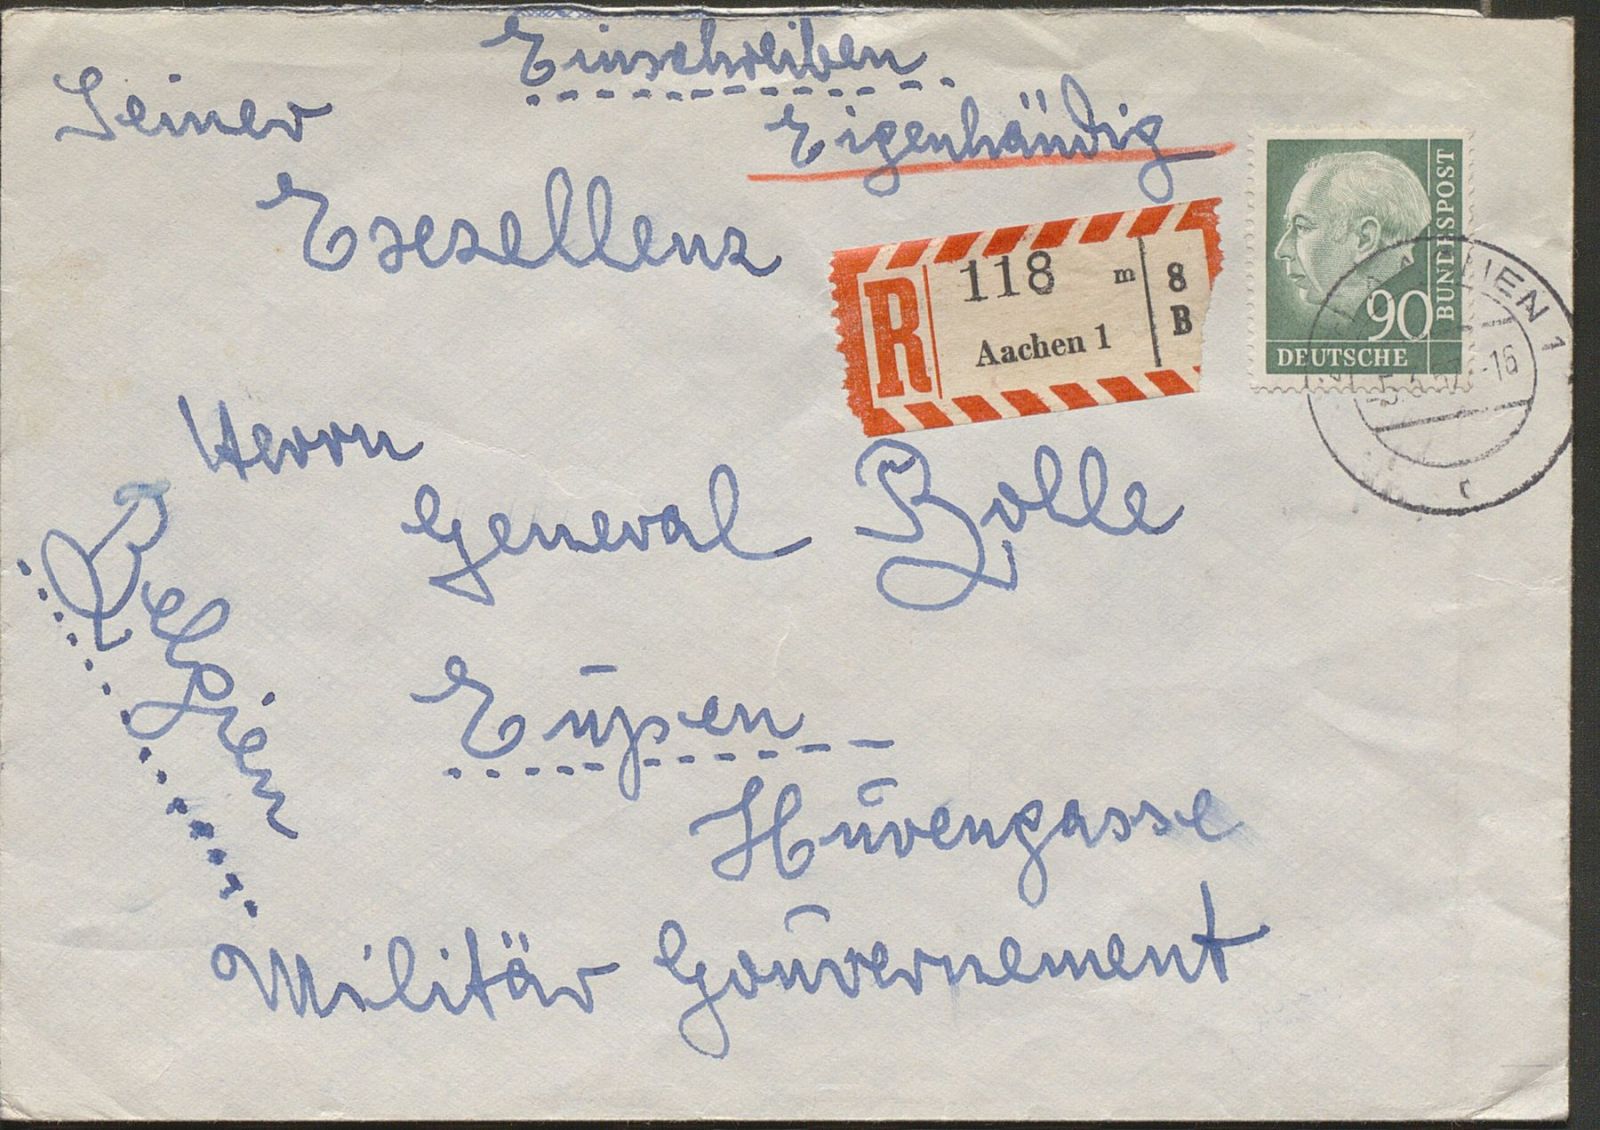 Einschreiben
Seiner
Eigenhändig
Exzellenz
R 118 m 8
Aachen 1 B
BUNDESPOST
90
DEUTSCHE
1
-16
c
Herrn
General Bolle
Belgien
Eupen
Hüvengasse
Militär Gouvernement